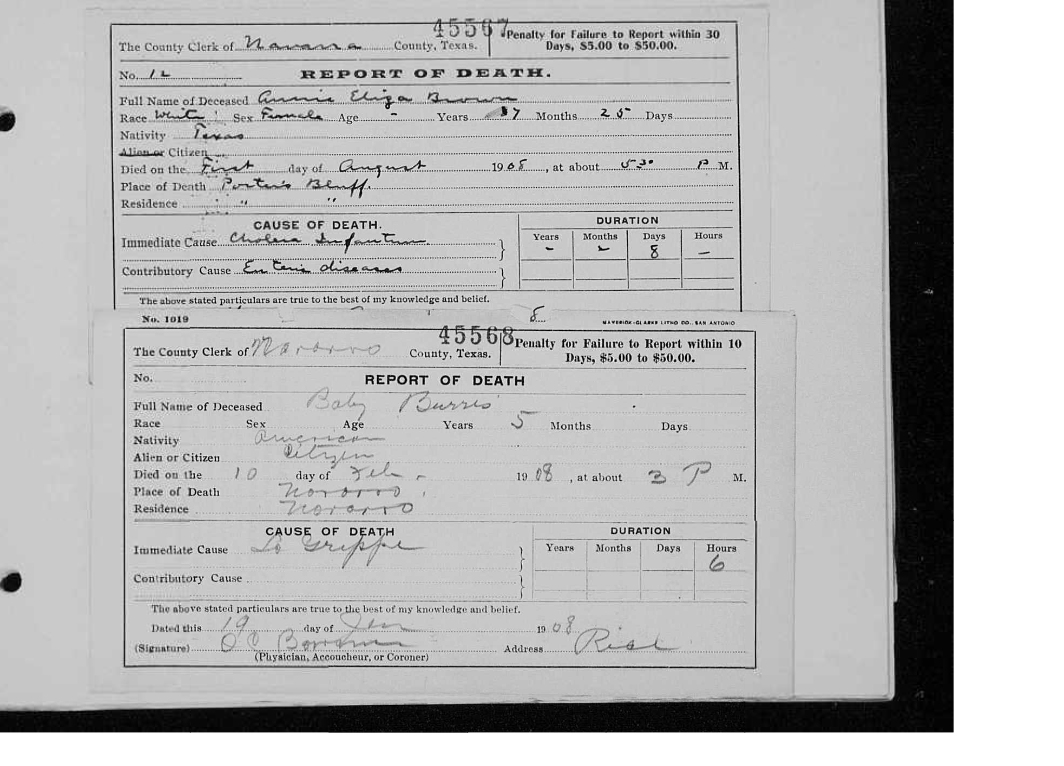 45567
The County Clerk of Navarro County, Texas.
Penalty for Failure to Report within 30 Days, $5.00 to $50.00.
No. 12
REPORT OF DEATH.
Full Name of Deceased Annie Eliza Brown
Race White Sex Female Age - Years 7 Months 25 Days
Nativity Texas
Alien or Citizen
Died on the First day of August 1908, at about 530 P M.
Place of Death Porter's Bluff.
Residence " "
CAUSE OF DEATH.
DURATION
Immediate Cause Cholera Infantum
Years Months Days Hours
- - 8 -
Contributory Cause Enteric diseases
The above stated particulars are true to the best of my knowledge and belief.
No. 1019
8
MAVERICK-CLARKE LITHO CO., SAN ANTONIO
45568
The County Clerk of Navarro County, Texas.
Penalty for Failure to Report within 10 Days, $5.00 to $50.00.
No.
REPORT OF DEATH
Full Name of Deceased Baby Burris
Race Sex Age Years 5 Months Days
Nativity American
Alien or Citizen Citizen
Died on the 10 day of Feb - 1908, at about 3 P M.
Place of Death Navarro
Residence Navarro
CAUSE OF DEATH
DURATION
Immediate Cause La Grippe
Years Months Days Hours
6
Contributory Cause
The above stated particulars are true to the best of my knowledge and belief.
Dated this 19 day of 1908
(Signature) Address
(Physician, Accoucheur, or Coroner)